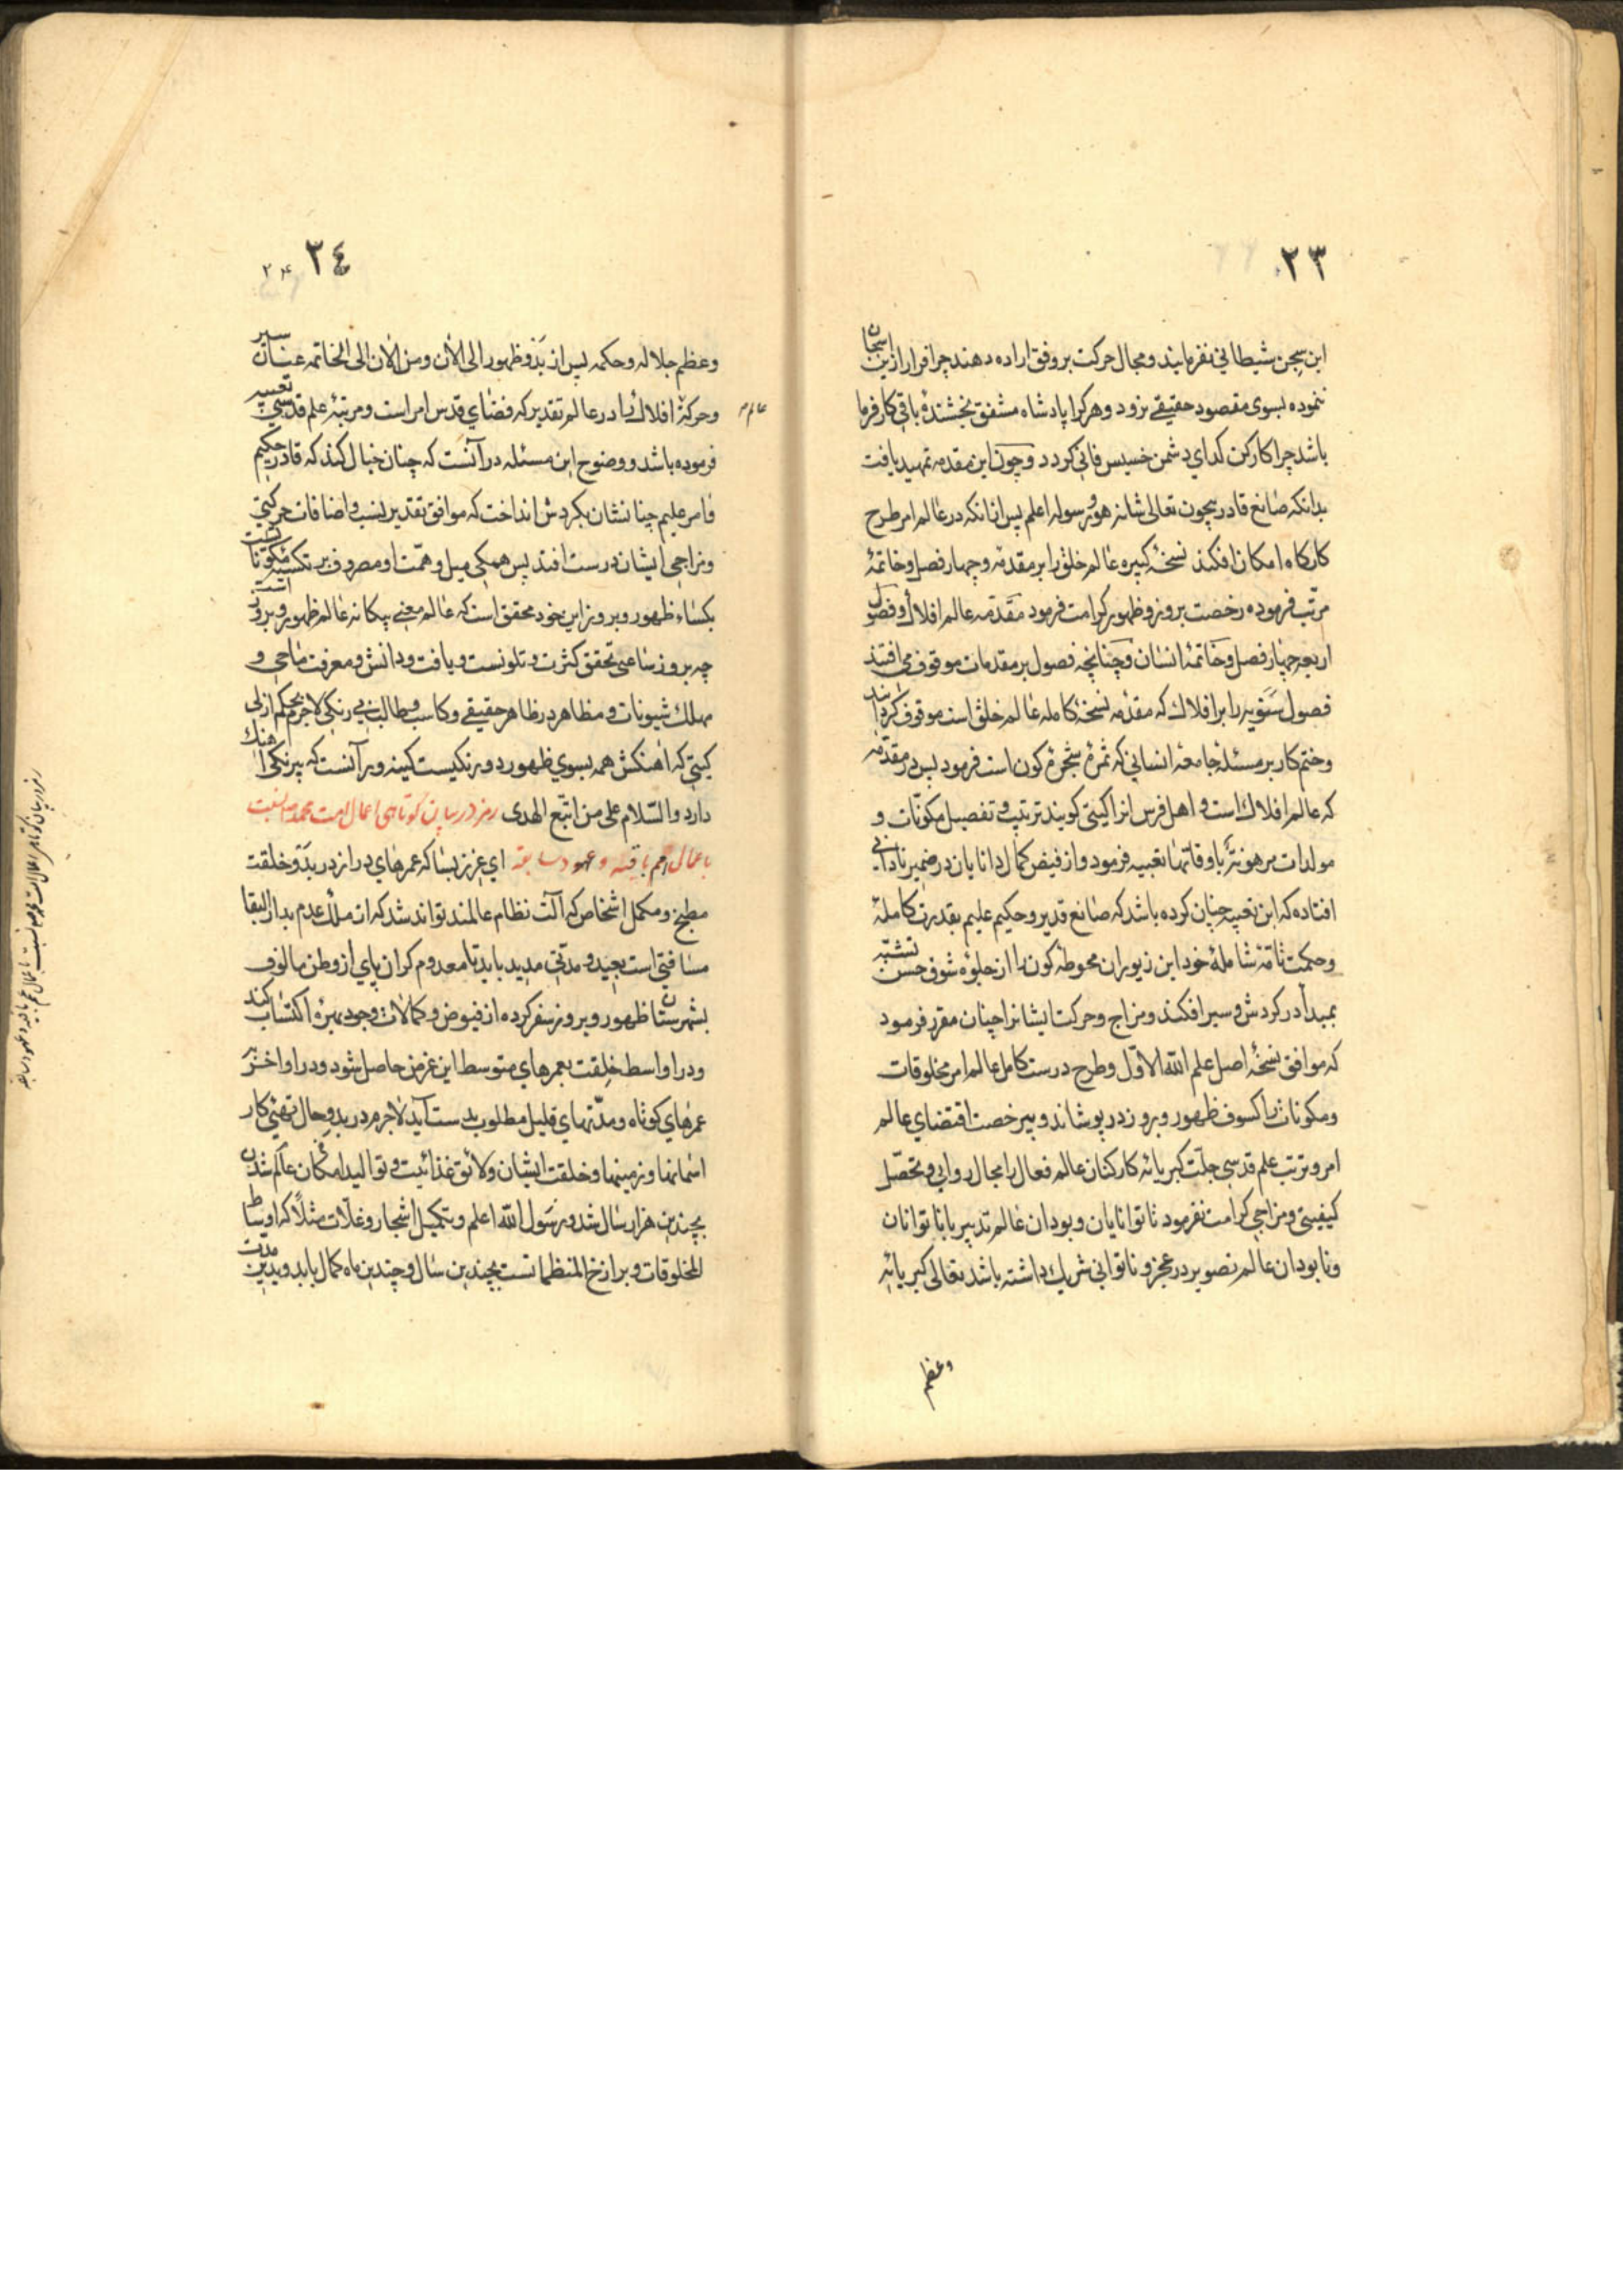 ٢٣
ابن سجن شیطانی نفرمایند و مجال حرکت بر وفق اراده دهند چرا فرار ازین اسجان
ننموده بسوی مقصود حقیقے نرود و هر کرا پادشاه مشفق بخشندهٔ باقی کار فرما
باشد چرا کارکن کدای دشمن خسیس فانی کردد و چون این مقدمه تمهید یافت
بدانکه صانع قادر بیچون تعالی شانه هو و رسوله اعلم پس از انکه در عالم امر طرح
کارکاه امکان افکند نسخهٔ کبیره عالم خلق را بر مقدمه و چهار فصل و خاتمهٔ
مرتب فرموده رخصت بروز و ظهور کرامت فرمود مقدّمه عالم افلاك و فصول
اربعه چهار فصل و خاتمهٔ انسان و چنانچه فصول بر مقدمات موقوف می افتند
فصول سنویه را بر افلاك که مقدمه نسخهٔ کامله عالم خلق است موقوف کردانید
و ختم کار بر مسئلهٔ جامعهٔ انسانی که ثمرهٔ شجرهٔ کون است فرمود پس در مقدّمه
که عالم افلاك است و اهل فرس انرا کیتی کویند ترتیب و تفصیل مکوّنات و
مولدات مرهونة باوقاتها تعبیه فرمود و از فیض کمال دانایان در ضمیر نادانی
افتاده که ابن تعبیه چنان کرده باشد که صانع قدیر و حکیم علیم بقدرت کاملهٔ
و حکمت تامّهٔ شاملهٔ خود این زیوران محوطهٔ کون را از جلوهٔ شوق حسن تشبّه
بمبدأ در کردش و سیر افکند و مزاج و حرکت ایشانرا چنان مقرر فرمود
که موافق نسخهٔ اصل علم اللّه الاوّل و طرح درست کامل عالم امر مخلوقات
و مکونات را کسوف ظهور و بروز در پوشاند و بیرخصت اقتضای عالم
امر و ترتب علم قدسی جلّت کبریائه کارکنان عالم فعال را مجال روایی و تحصّل
کیفیتی و مزاجی کرامت نفرمود تا توانایان و بودان عالم تدبیر با ناتوانان
و نابودان عالم تصویر در عجز و ناتوانی شریك داشته باشد تعالی کبریائه
وعظم
٢٤
٢۴
و عظم جلاله و حکمه پس از بَدو ظهور الی الأن و من الأن الی الخاتمه عنان سیر
و حرکة افلاك را در عالم تقدیر که فضای قدس امر است و مرتبهٔ علم قدسی تعبیه
عالم
فرموده باشد و وضوح ابن مسئله در آنست که چنان خیال کند که قادر حکیم
و امر علیم چنانشان بکردش انداخت که موافق تقدیر نسب و اضافات حرکتی
و مزاجی ایشان درست افتد پس همکی میل و همّت او مصروف بر تکسیه مکونات است
بکساء ظهور و بروز این خود محقق است که عالم معنی بیکانه عالم ظهور و بروز
چه بروز ساعی تحقق کثرت و تلونست و یافت و دانش و معرفت ماحی و
مهلك شیونات و مظاهر در ظاهر حقیقے و کاسب و طالب بی رنکی لاجرم بحکم ازلی
کیتی که اهنکش همه بسوی ظهور دو رنکیست کینه ور آنست که بیرنکی اهنك
دارد والسّلام علی من اتبّع الهدی رمز در بیان کوتاهی اعمال امت محمد ص نسبت
باعمال امم باقیه و عهود سابقه ای عزیز بسا که عمرهای دراز در بدو خلقت
مطبخ و مکمل اشخاص که آلت نظام عالمند تواند شد که از ملك عدم بدار البقا
مسافتی است بعید و مدتی مدید باید تا معدوم کران پای از وطن مالوف
بشهرستان ظهور و بروز سفر کرده از فیوض و کمالات وجود بهرهٔ اکتساب کند
و در اواسط خلقت بعمرهای متوسط این غرض حاصل شود و در اواخر بر
عمرهای کوتاه و مدّتهای قلیل مطلوب بدست آید لاجرم در بدو حال تهنی کار
اسمانها و زمینها و خلقت ایشان و لائق غذائیت و توالید امکان عالم شدن
بچندین هزار سال شد و رسول اللّه اعلم و بتکمیل اشجار و غلّات مثلاً که اوساط
المخلوقات و برازخ المنظماتست بچندین سال و چندین ماه کمال یابد و بدین مدّت
رمز در بیان کوتاهی اعمال امت محمد ص نسبت باعمال امم باقیه و عهود سابقه